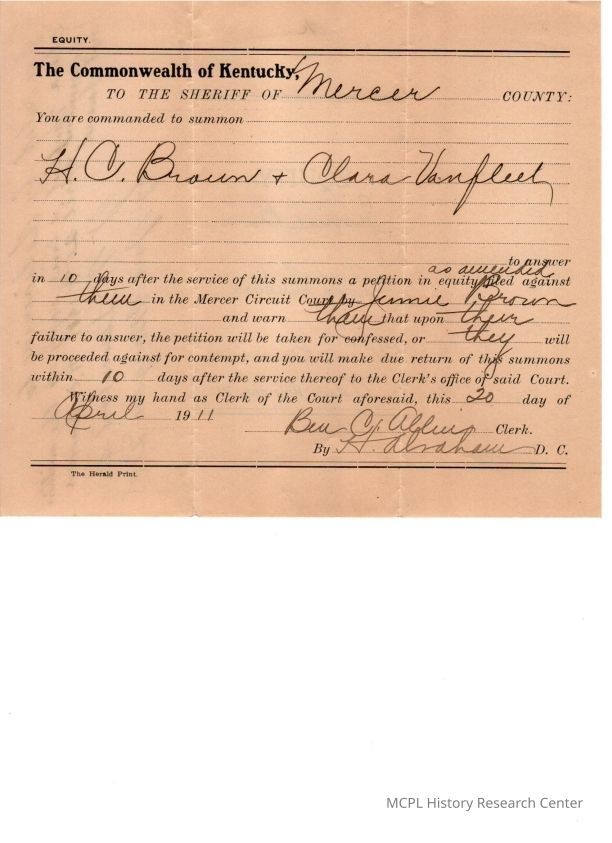 EQUITY.
The Commonwealth of Kentucky,
TO THE SHERIFF OF Mercer COUNTY:
You are commanded to summon
H. C. Brown + Clara Vanfleet
to answer
as amended
in 10 days after the service of this summons a petition in equity filed against
them in the Mercer Circuit Court by Jennie Brown
and warn them that upon their
failure to answer, the petition will be taken for confessed, or they will
be proceeded against for contempt, and you will make due return of this summons
within 10 days after the service thereof to the Clerk's office of said Court.
Witness my hand as Clerk of the Court aforesaid, this 20 day of
April 1911
Ben C. Allin Clerk.
By H. Abraham D. C.
The Herald Print.
MCPL History Research Center